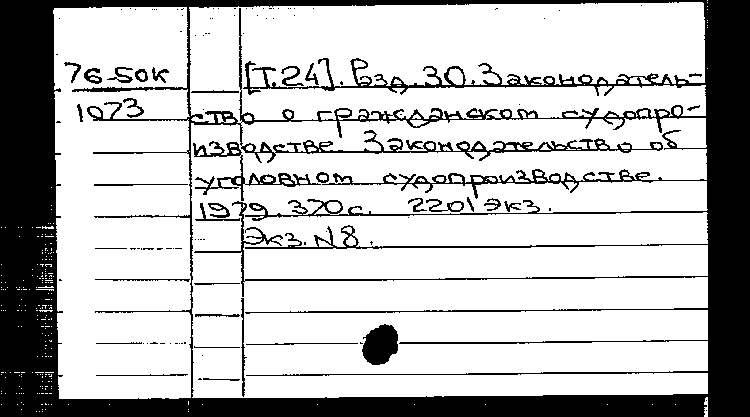 76-50К
[Т.24]. Разд. 30. Законодатель-
1073
ство о гражданском судопро-
изводстве. Законодательство об
уголовном судопроизводстве.
1979. 370с. 2201 экз.
Экз. N 8.